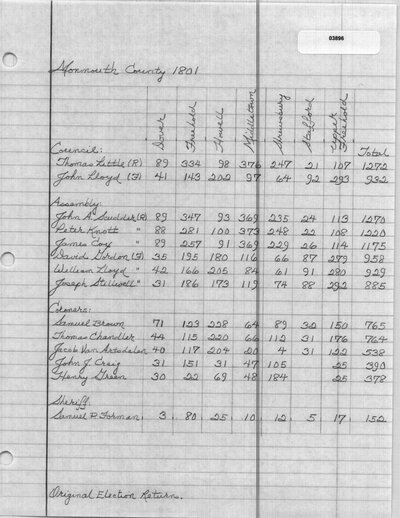 03896
Monmouth County 1801
Dover Freehold Howell Middletown Shrewsbury Stafford Upper Freehold Total
Council:
Thomas Little (R) 89 334 98 376 247 21 107 1272
John Lloyd (F) 41 143 202 97 64 92 293 932
Assembly:
John A. Scudder (R) 89 347 93 369 235 24 113 1270
Peter Knott " 88 281 100 373 248 22 108 1220
James Cox " 89 257 91 369 229 26 114 1175
David Gordon (F) 35 195 180 116 66 87 279 958
William Lloyd " 42 166 205 84 61 91 280 929
Joseph Stillwell " 31 186 173 119 74 88 292 885
Coroners:
Samuel Brown 71 123 228 64 89 32 150 765
Thomas Chandler 44 115 220 66 112 31 176 764
Jacob Van Artsdalen 40 117 204 20 4 31 122 538
John J. Craig 31 151 31 47 105 25 390
Henry Green 30 22 69 48 184 25 378
Sheriff:
Samuel P. Forman 3 80 25 10 12 5 17 152
Original Election Return.